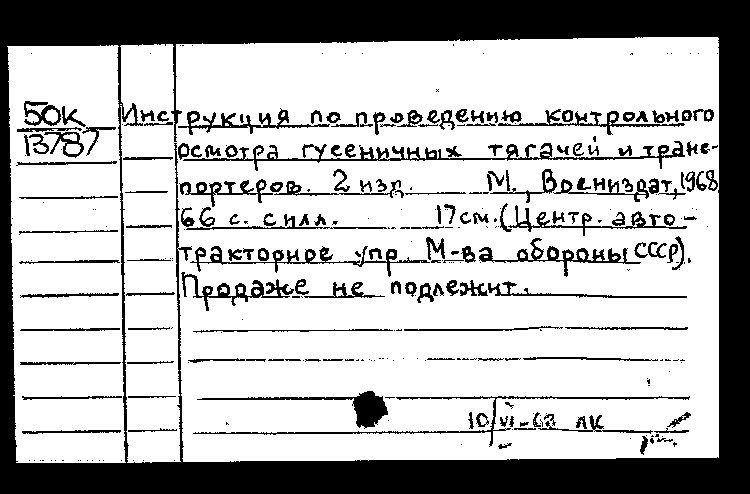 50к
13787
Инструкция по проведению контрольного
осмотра гусеничных тягачей и транс-
портеров. 2 изд. М., Воениздат, 1968.
66 с. с илл. 17 см. (Центр. авто-
тракторное упр. М-ва обороны СССР).
Продаже не подлежит.
10/VI-68 ЛК